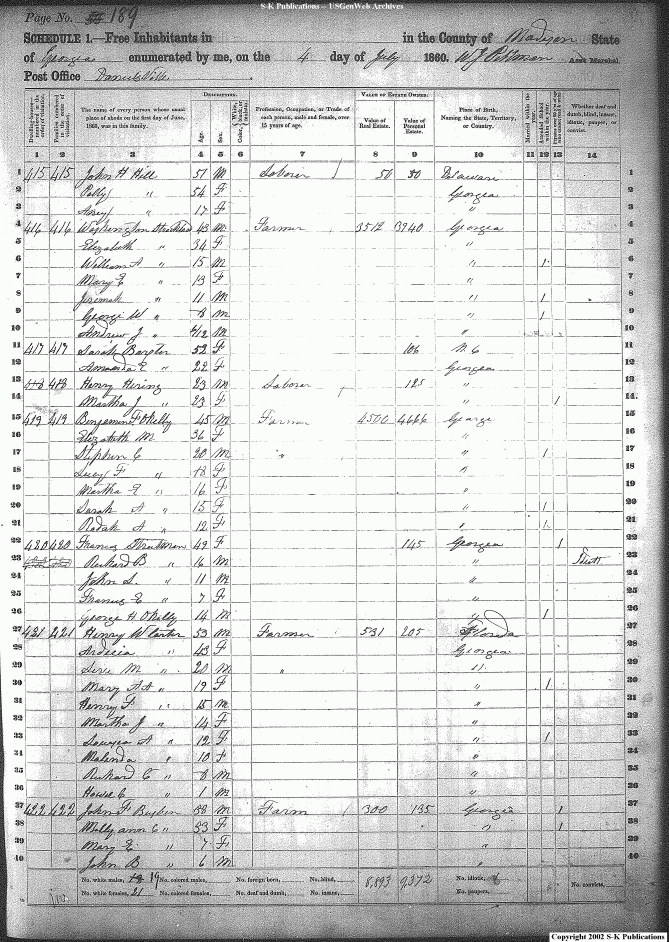 S-K Publications -- USGenWeb Archives
Page No. 189
SCHEDULE 1.—Free Inhabitants in in the County of Madison State
of Georgia enumerated by me, on the 4 day of July 1860. Ass't Marshal.
Post Office Danielsville
DESCRIPTION. VALUE OF ESTATE OWNED.
The name of every person whose usual place of abode on the first day of June, 1860, was in this family. Age. Sex. Profession, Occupation, or Trade of each person, male and female, over 15 years of age. Value of Real Estate. Value of Personal Estate. Place of Birth, Naming the State, Territory, or Country. Whether deaf and dumb, blind, insane, idiotic, pauper, or convict.
1 2 3 4 5 6 7 8 9 10 11 12 13 14
1 415 415 John H Hill 51 M Laborer 50 30 Delaware 1
2 Polly " 54 F Georgia 2
3 " 17 F " 3
4 416 416 Washington 43 M Farmer 3512 3940 Georgia 4
5 Elizabeth " 34 F " 5
6 William A " 15 M " 1 6
7 Mary E " 13 F " 7
8 Jeremiah " 11 M " 1 8
9 George W " 8 M " 1 9
10 Andrew J " 4/12 M " 10
11 417 417 Sarah 52 F 106 N. C 11
12 Amanda E " 22 F Georgia 12
13 418 Henry 23 M Laborer 125 " 13
14 Martha J " 23 F " 1 14
15 419 419 Benjamin F OKelly 45 M Farmer 4500 4666 George 15
16 Elizabeth M 36 F " 16
17 Stephen C 20 M " " 1 17
18 Lucy F " 18 F " 18
19 Martha E " 16 F " 19
20 Sarah A " 15 F " 1 20
21 A " 12 F " 1 21
22 420 420 Francis 49 F 145 Georgia 1 22
23 Richard B " 16 M " 23
24 John S. " 11 M " 24
25 Francis E " 7 F " 25
26 George H OKelly 14 M " 1 26
27 421 421 Henry W Carter 53 M Farmer 531 205 Florida 27
28 " 43 F Georgia 28
29 M " 20 M " " 29
30 Mary A A " 19 F " 1 30
31 Henry F " 15 M " 31
32 Martha J " 14 F " 32
33 A " 12 F " 1 33
34 Malinda " 10 F " 34
35 Richard C " 8 M " 35
36 " 1 M " 36
37 422 422 John F 38 M Farm 300 135 Georgia 1 37
38 " 33 F " 1 38
39 Mary E " 7 F " 39
40 John B " 6 M " 40
No. white males, 19 No. colored males, No. foreign born, No. blind, 8,893 9,372 No. idiotic, No. convicts,
No. white females, 21 No. colored females, No. deaf and dumb, No. insane, No. paupers,
Copyright 2002 S-K Publications